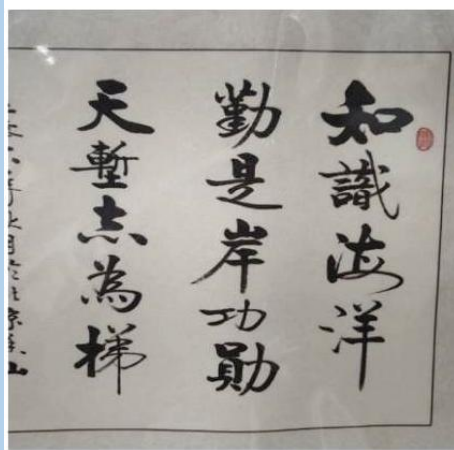 知識海洋
勤是岸功勛
天塹志為梯